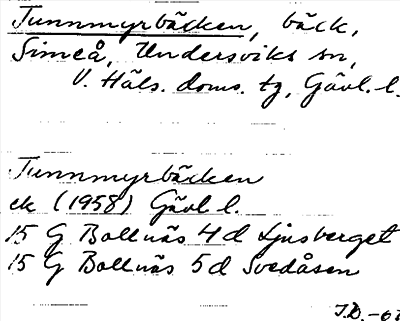 Tunnmyrbäcken, bäck,
Simeå, Undersviks sn,
V. Häls. doms. tg, Gävl. l.
Tunnmyrbäcken
ek (1958) Gävl l.
15 G Bollnäs 4 d Ljusberget
15 G Bollnäs 5 d Svedåsen